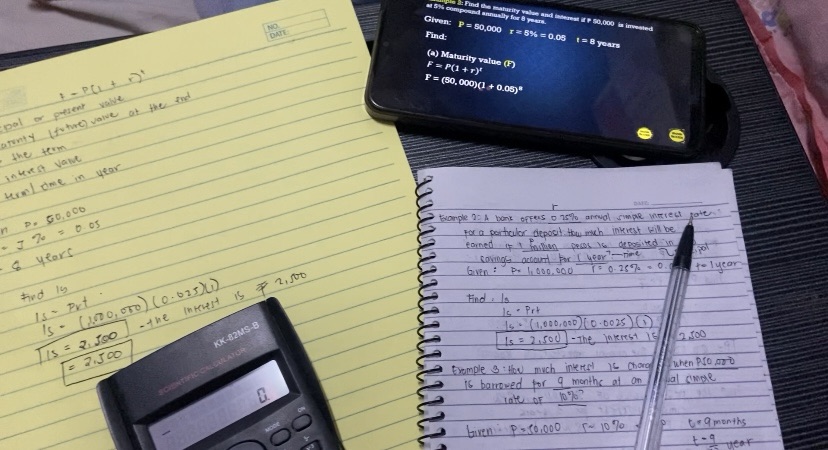 NO.
DATE
P(1 + r)t
or present value
(future) value at the end
the term
interest value
time in year
50,000
= 0.05
8 years
Find Is
Is = Prt
Is = (1,000,000)(0.025)(1)
Is = 2,500 -the interest is ₱ 2,500
= 2,500
KK-82MS-B
SCIENTIFIC CALCULATOR
0.
MODE
ON
2: Find the maturity value and interest if P 50,000 is invested
at 5% compound annually for 8 years.
Given: P = 50,000 r = 5% = 0.05 t = 8 years
Find:
(a) Maturity value (F)
F = P(1 + r)ᵗ
F = (50,000)(1 + 0.05)⁸
r
Example 2: A bank offers 0.25% annual simple interest rate
for a particular deposit. How much interest will be
earned if 1 million pesos is deposited in
savings account for 1 year? time
Given: P= 1,000,000 r= 0.25% = t= 1 year
Find: Is
Is = Prt
Is = (1,000,000)(0.0025)(1)
Is = 2,500 -The interest is 2,500
Example 3: How much interest is when P50,000
is borrowed for 9 months at an simple
rate of 10%?
Given: r= 10% t= 9 months
t= 9
year